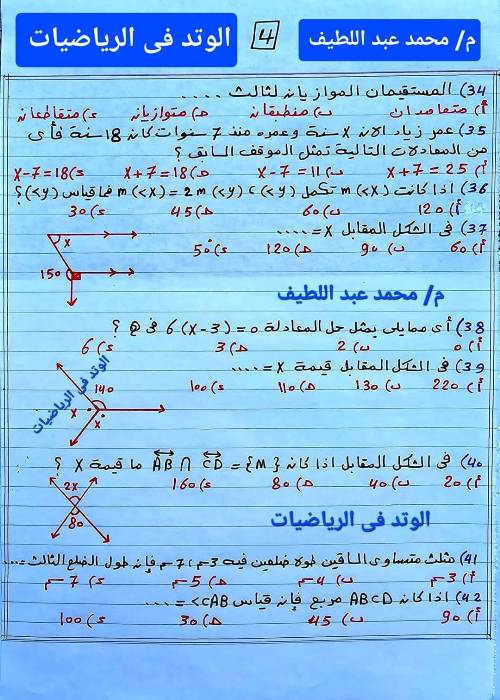 م/ محمد عبد اللطيف
4
الوتد فى الرياضيات
34) المستقيمان الموازيان لثالث ....
أ) متعامدان ب) منطبقان ج) متوازيان د) متقاطعان
35) عمر زياد الان X سنة وعمره منذ 7 سنوات كان 18 سنة فأى
من المعادلات التالية تمثل الموقف السابق ؟
أ) X + 7 = 25 ب) X - 7 = 11 ج) X + 7 = 18 د) X - 7 = 18
36) اذا كانت m(<X) تكمل m(<X) = 2m(<y) ، (<y) فما قياس (<y) ؟
أ) 120 ب) 60 ج) 45 د) 30
37) فى الشكل المقابل X = ....
أ) 60 ب) 90 ج) 120 د) 50
X
150
م/ محمد عبد اللطيف
38) أى مما يلى يمثل حل المعادلة 6(X-3) = 0 فى Q ؟
أ) 0 ب) 2 ج) 3 د) 6
39) فى الشكل المقابل قيمة X = ....
أ) 220 ب) 130 ج) 110 د) 100
الوتد فى الرياضيات
140
X
X
40) فى الشكل المقابل اذا كان AB ∩ CD = {M} ما قيمة X ؟
أ) 20 ب) 40 ج) 80 د) 160
2X
80
الوتد فى الرياضيات
41) مثلث متساوى الساقين طولا ضلعين فيه 3سم ، 7سم فإن طول الضلع الثالث = ....
أ) 3سم ب) 4سم ج) 5سم د) 7سم
42) اذا كان ABCD مربع فإن قياس <CAB = ....
أ) 90 ب) 45 ج) 30 د) 100